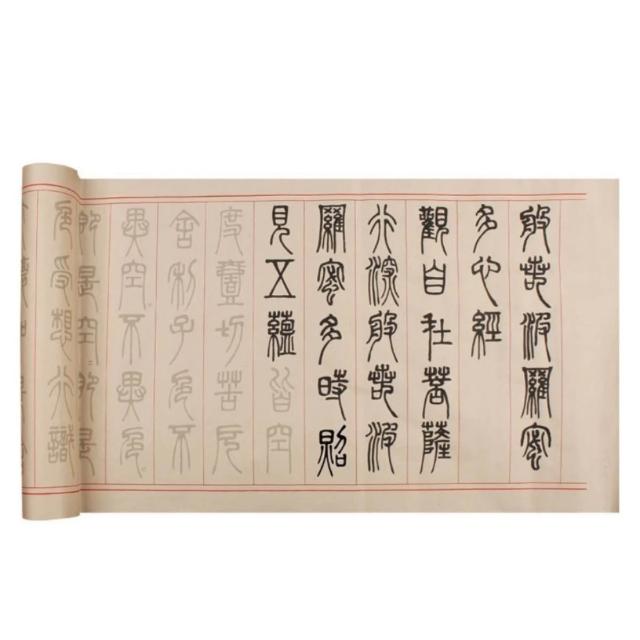 般若波羅蜜
多心經
觀自在菩薩
行深般若波
羅蜜多時照
見五蘊皆空
度壹切苦厄
舍利子色不
異空〻不異色〻
即是空〻即是
色受想行識